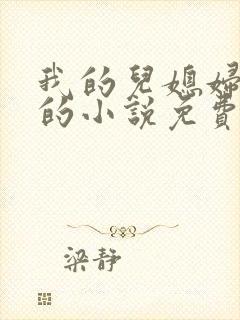 我的兒媳婦
的小說免費
梁靜